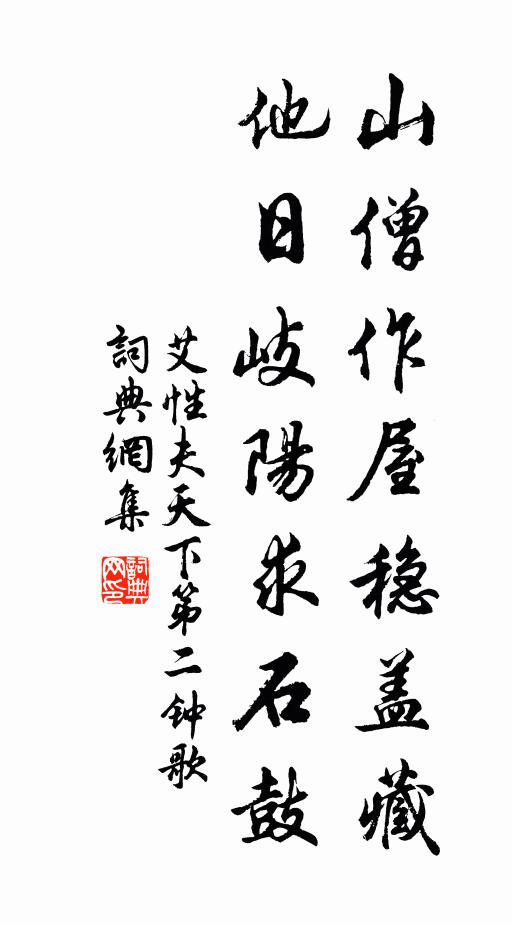 山僧作屋穏盖藏
他日岐陽求石鼓
艾性夫天下第二钟歌
詞典網集
詞典网印